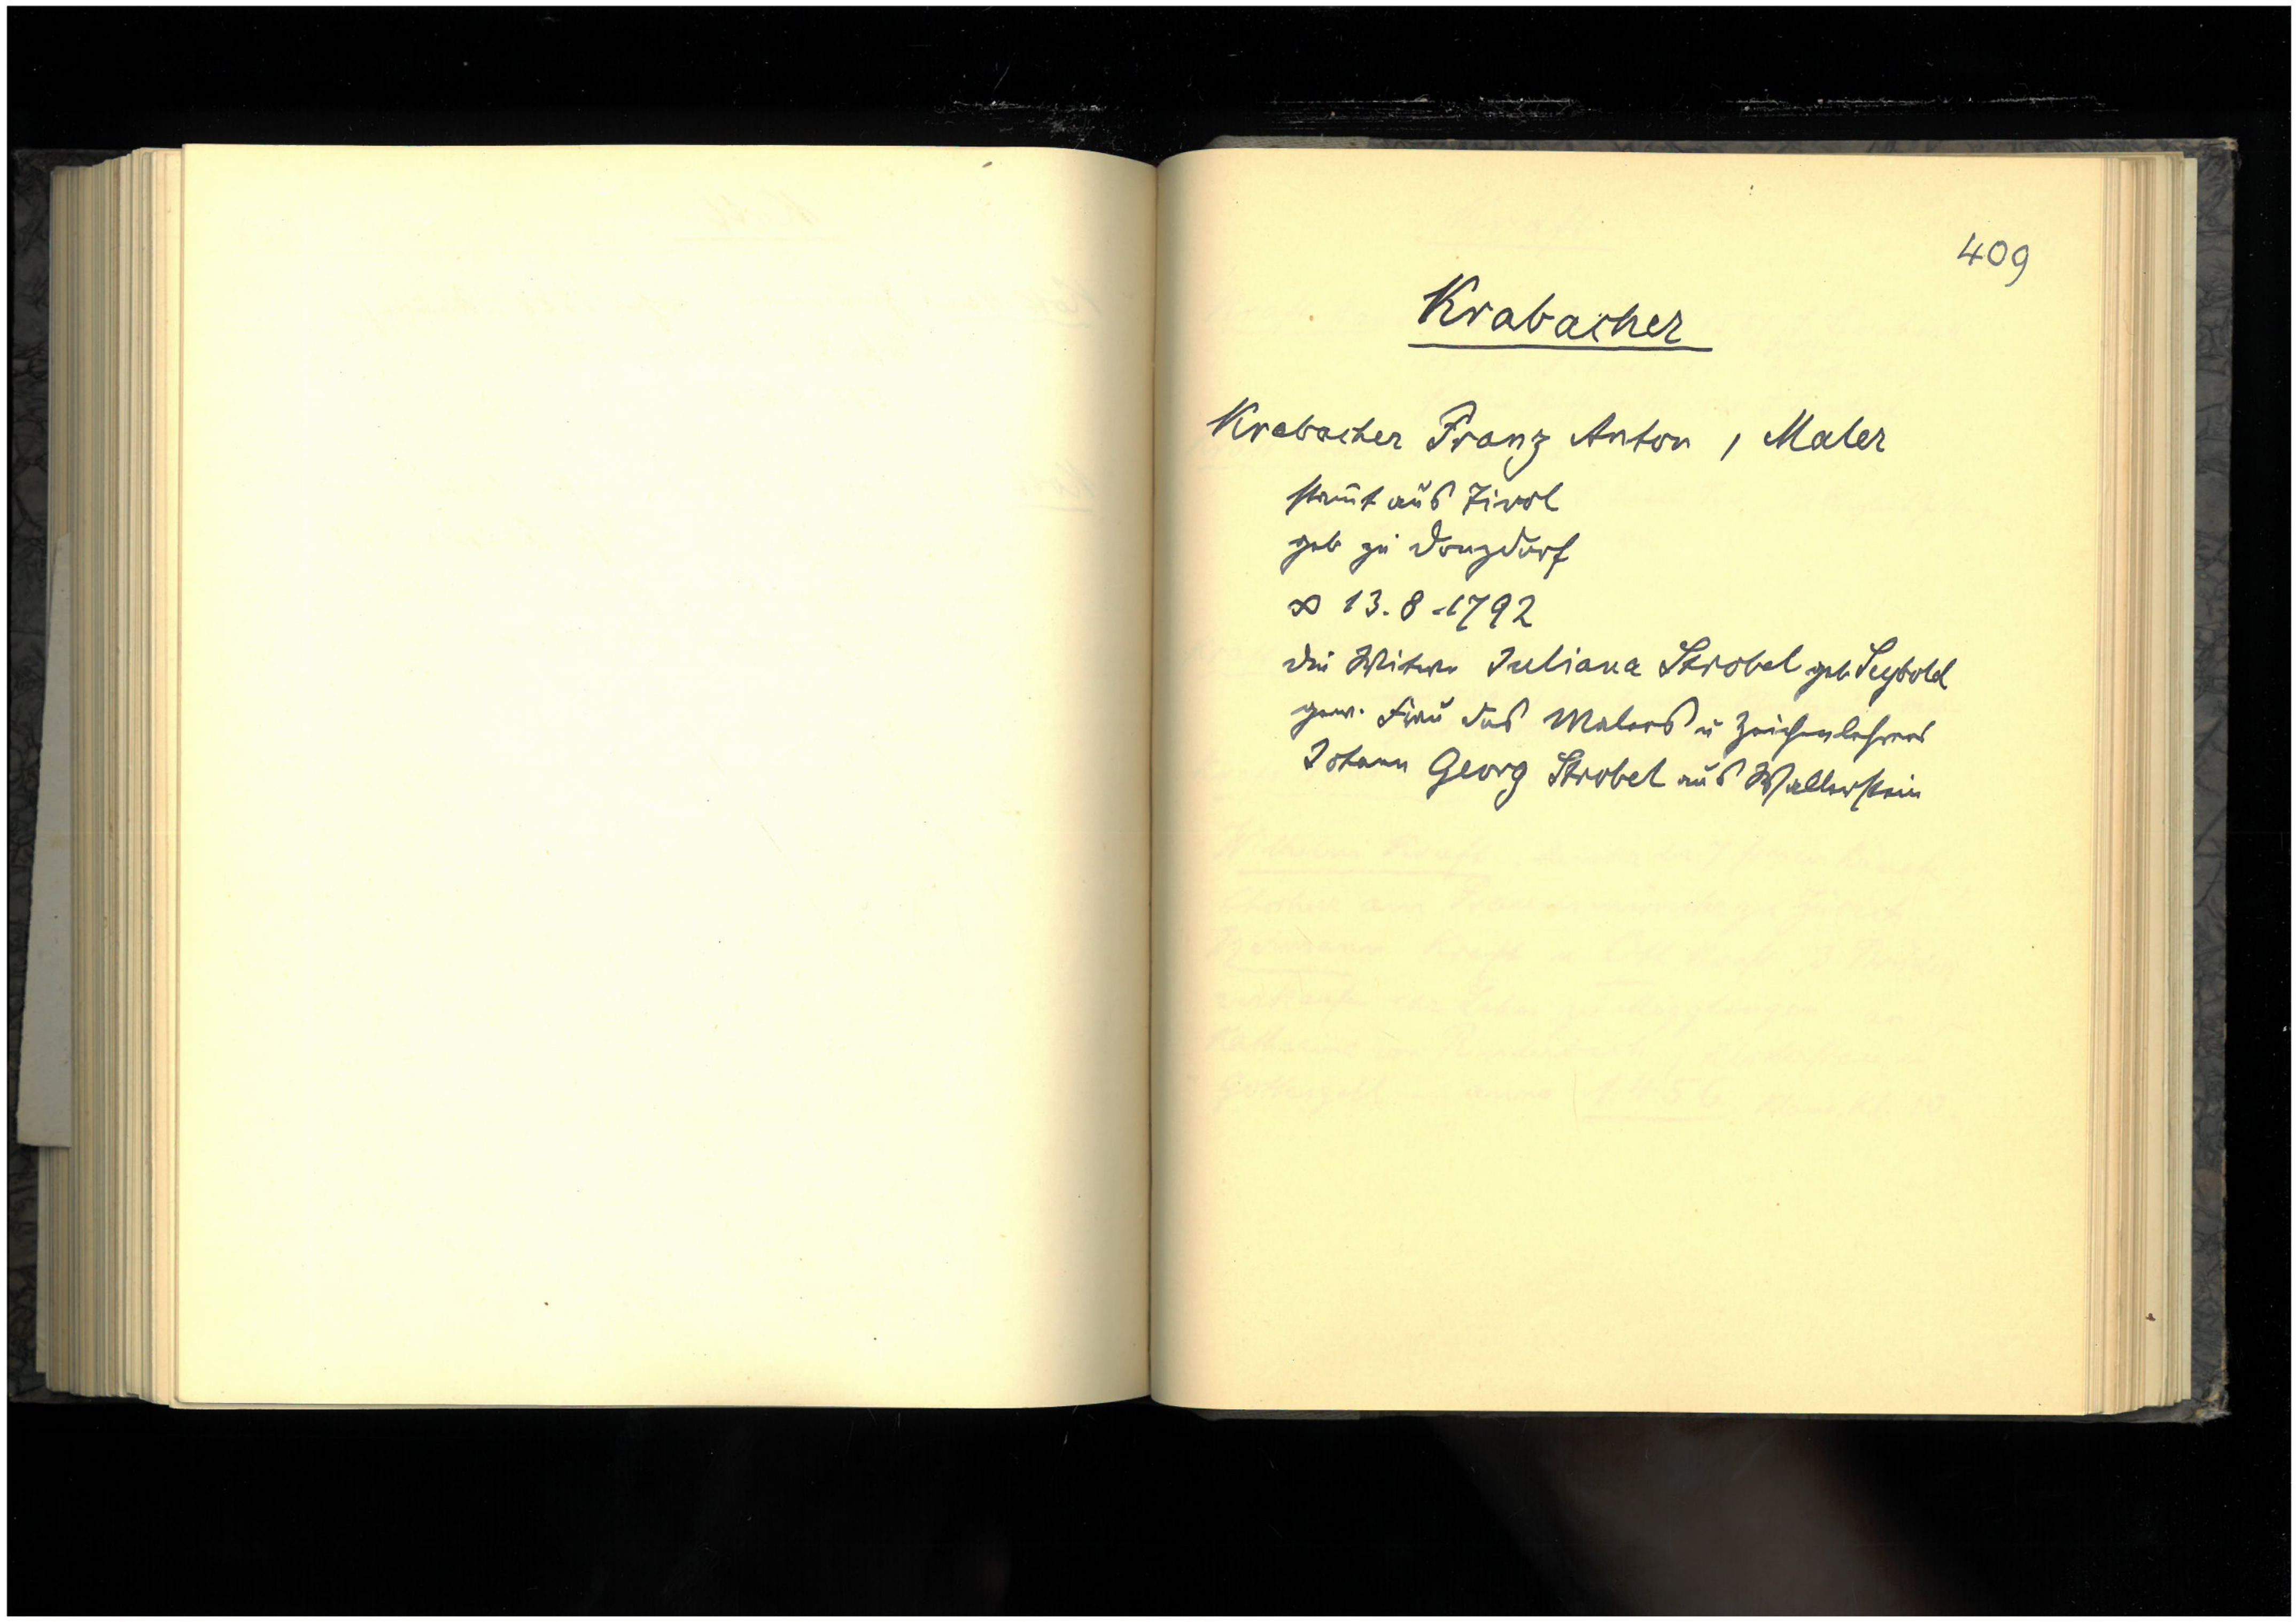 409
Krabacher
Krabacher Franz Anton, Maler
stam̄t aus Tirol
geb zu Donzdorf
∞ 13.8.1792
die Witwe Juliana Strobel geb. Seybold
gew. Frau des Malers u Zeichenlehrers
Johann Georg Strobel aus Wallerstein